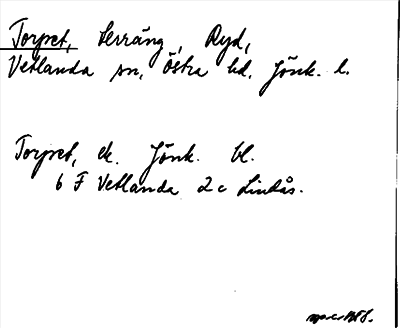 Torpet, terräng, Ryd,
Vetlanda sn, Östra hd. Jönk. l.
Torpet, ek. Jönk. bl.
6 F Vetlanda 2 c Lindås.